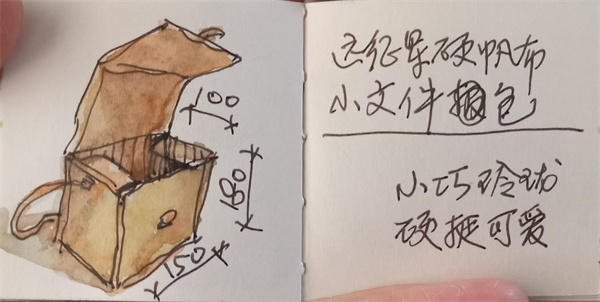 100
180
150
远征军硬帆布
小文件包
小巧玲珑
硬挺可爱